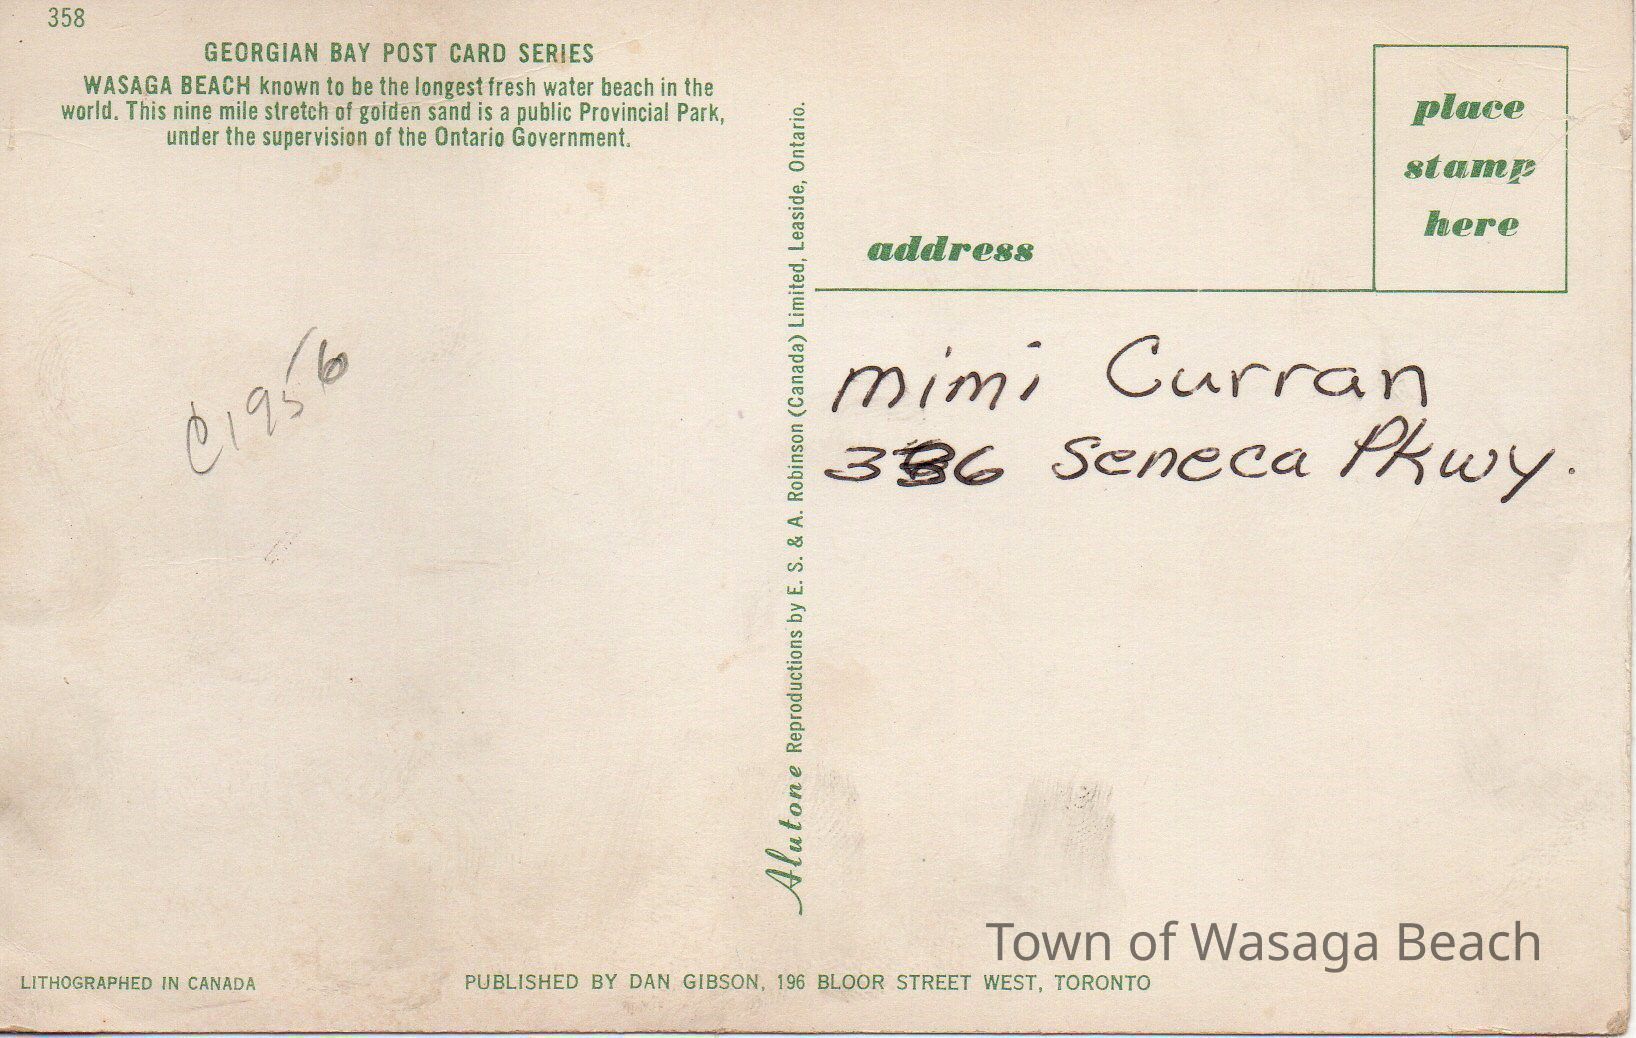 358
GEORGIAN BAY POST CARD SERIES
WASAGA BEACH known to be the longest fresh water beach in the
world. This nine mile stretch of golden sand is a public Provincial Park,
under the supervision of the Ontario Government.
C1956
Alutone Reproductions by E. S. & A. Robinson (Canada) Limited, Leaside, Ontario.
place
stamp
here
address
mimi Curran
Seneca Pkwy.
Town of Wasaga Beach
LITHOGRAPHED IN CANADA
PUBLISHED BY DAN GIBSON, 196 BLOOR STREET WEST, TORONTO